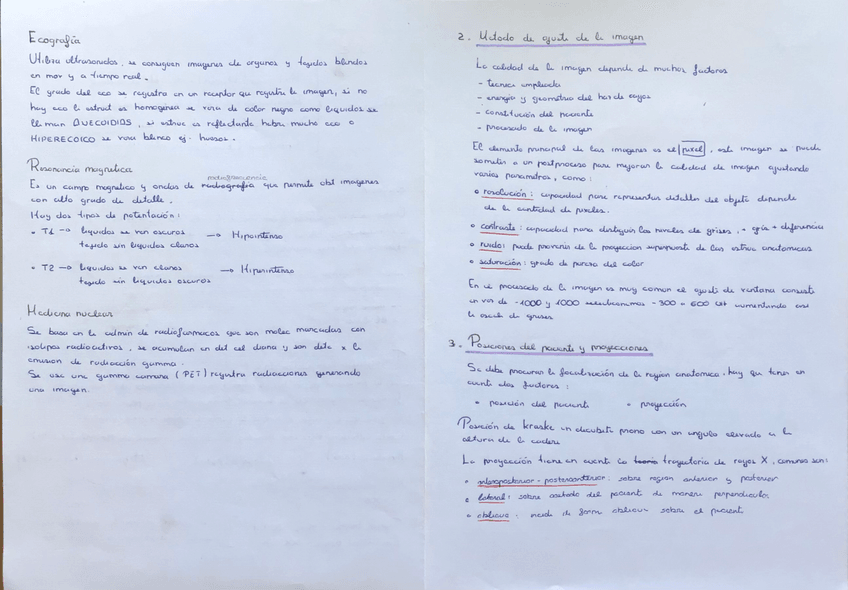 Ecografía
Utiliza ultrasonidos, se consiguen imagenes de organos y tejidos blandos
en mov y a tiempo real.
El grado del eco se registra en un receptor que registra la imagen, si no
hay eco la estruct es homogenea se vera de color negro como liquidos se
llaman ANECOIDOS, si estruc es reflectante habra mucho eco o
HIPERECOICO se vera blanco ej. huesos.
Resonancia magnetica
radiofrecuencia
Es un campo magnetico y ondas de radiografia que permite obt imagenes
con alto grado de detalle.
Hay dos tipos de potentación:
• T1 → liquidos se ven oscuros → Hipointenso
tejido sin liquidos claros
• T2 → liquidos se ven claros → Hiperintenso
tejido sin liquidos oscuros
Medicina nuclear
Se basa en la admin de radiofarmacos que son molec marcadas con
isotopos radioactivos, se acumulan en det cel diana y son dete x la
emision de radiación gamma.
Se usa una gamma camara (PET) registra radiacciones generando
una imagen.
2. Método de ajuste de la imagen
La calidad de la imagen depende de muchos factores
- tecnica empleada
- energía y geometria del haz de rayos
- constitución del paciente
- procesado de la imagen
El elemento principal de las imagenes es el pixel, esta imagen se puede
someter a un postproceso para mejorar la calidad de imagen ajustando
varios parametros, como:
• resolución: capacidad para representar detalles del objeto depende
de la cantidad de pixeles.
• contraste: capacidad para distinguir los niveles de grises, + diferencia
• ruido: puede provenir de la proyeccion superpuesta de las estruc anatomicas
• saturación: grado de pureza del color
En el procesado de la imagen es muy comun el ajuste de ventana consiste
en vez de -1000 y 1000 seleccionamos -300 a 600 UH aumentando asi
la escala de grises.
3. Posiciones del paciente y proyecciones
Se debe procurar la focalización de la region anatomica, hay que tener en
cuenta dos factores:
• posición del paciente • proyección
Posición de kraske en decubito prono con un angulo elevado a la
altura de la cadera
La proyección tiene en cuenta la trayectoria de rayos X, comunes son:
• anteroposterior - posteroanterior: sobre region anterior y posterior
• lateral: sobre costado del paciente de manera perpendicular
• oblicua: incide de form oblicua sobre el paciente